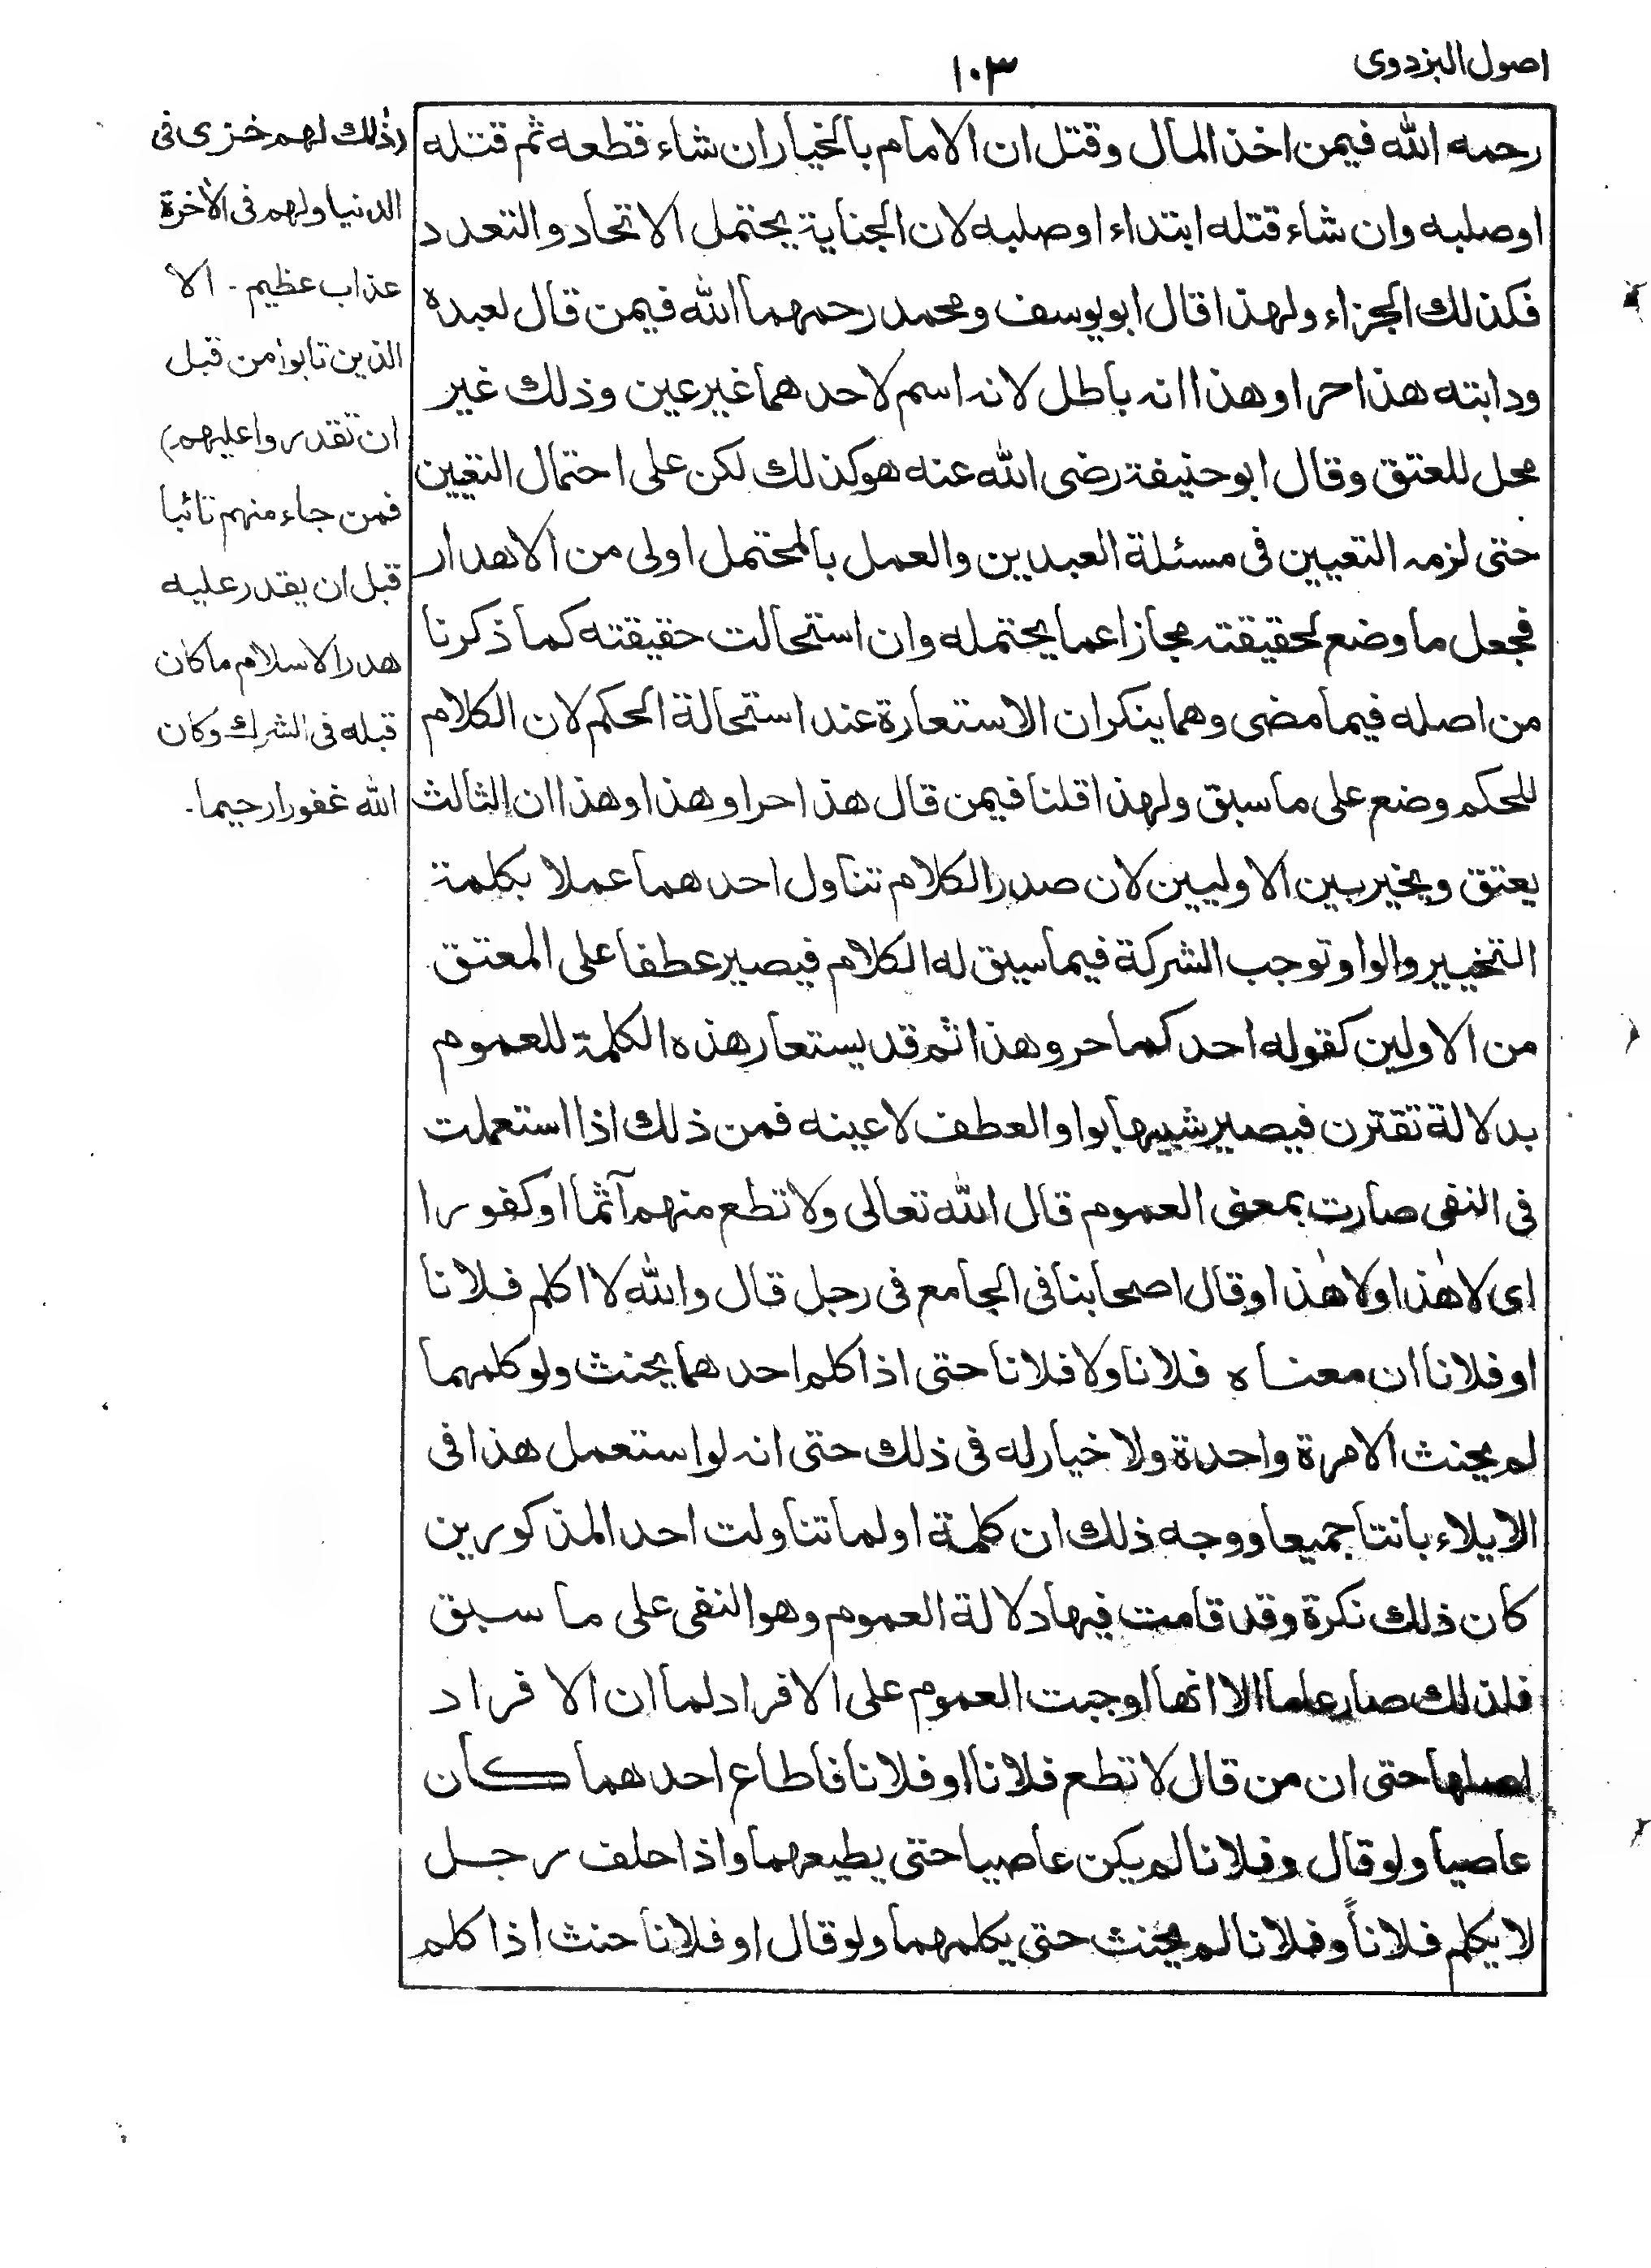 اصول البزدوى
١٠٣
رحمه الله فيمن اخذ المال وقتل ان الامام بالخيار ان شاء قطعه ثم قتله
او صلبه وان شاء قتله ابتداء او صلبه لان الجناية يحتمل الاتحاد والتعدد
فكذلك الجزاء ولهذا قال ابو يوسف ومحمد رحمهما الله فيمن قال لعبده
ودابته هذا حر او هذا انه باطل لانه اسم لاحدهما غير عين وذلك غير
محل للعتق وقال ابو حنيفة رضى الله عنه هو كذلك لكن على احتمال التعيين
حتى لزمه التعيين فى مسئلة العبدين والعمل بالمحتمل اولى من الاهدار
فجعل ما وضع لحقيقته مجازا عما يحتمله وان استحالت حقيقته كما ذكرنا
من اصله فيما مضى وهما ينكران الاستعارة عند استحالة الحكم لان الكلام
للحكم وضع على ما سبق ولهذا قلنا فيمن قال هذا حر او هذا وهذا ان الثالث
يعتق ويخير بين الاوليين لان صدر الكلام تناول احدهما عملا بكلمة
التخيير والواو توجب الشركة فيما سيق له الكلام فيصير عطفا على المعتق
من الاولين كقوله احدكما حر وهذا ثم قد يستعار هذه الكلمة للعموم
بدلالة تقترن فيصير شبيها بواو العطف لا عينه فمن ذلك اذا استعملت
فى النفى صارت بمعنى العموم قال الله تعالى ولا تطع منهم آثما او كفورا
اى لا هٰذا ولا هٰذا وقال اصحابنا فى الجامع فى رجل قال والله لا اكلم فلانا
او فلانا ان معناه فلانا ولا فلانا حتى اذا كلم احدهما يحنث ولو كلمهما
لم يحنث الا مرة واحدة ولا خيار له فى ذلك حتى انه لو استعمل هذا فى
الايلاء بانتا جميعا ووجه ذلك ان كلمة او لما تناولت احد المذكورين
كان ذلك نكرة وقد قامت فيها دلالة العموم وهو النفى على ما سبق
فلذلك صار عاما الا انها اوجبت العموم على الافراد لما ان الافراد
اصلها حتى ان من قال لا تطع فلانا او فلانا فاطاع احدهما كان
عاصيا ولو قال وفلانا لم يكن عاصيا حتى يطيعهما واذا حلف رجل
لا يكلم فلاناً وفلانا لم يحنث حتى يكلمهما ولو قال او فلانا حنث اذا كلم
(ذٰلك لهم خزى فى
الدنيا ولهم فى الأخرة
عذاب عظيم - الا
الذين تابوا من قبل
ان تقدروا عليهم)
فمن جاء منهم تائبا
قبل ان يقدر عليه
هدر الاسلام ما كان
قبله فى الشرك وكان
الله غفورا رحيما -